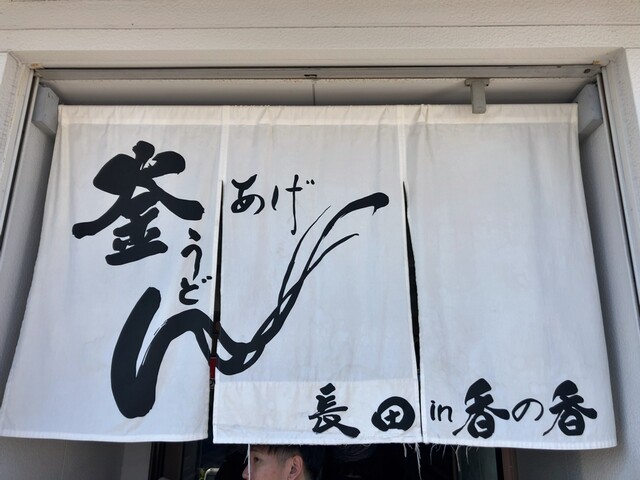 釜あげ
うどん
長田in香の香